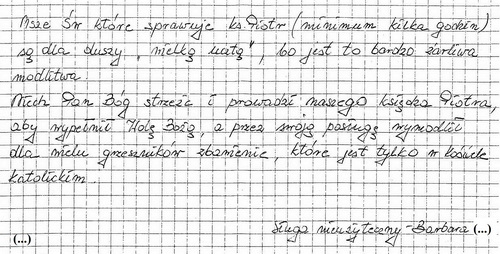 Msze Św które sprawuje ks. Piotr (minimum kilka godzin)
są dla duszy „wielką ucztą", bo jest to bardzo żarliwa
modlitwa.
Niech Pan Bóg strzeże i prowadzi naszego księdza Piotra,
aby wypełnił Wolę Bożą, a przez swoją posługę wymodlił
dla wielu grzeszników zbawienie, które jest tylko w kościele
katolickim.
sługa nieużyteczny - Barbara (...)
(...)